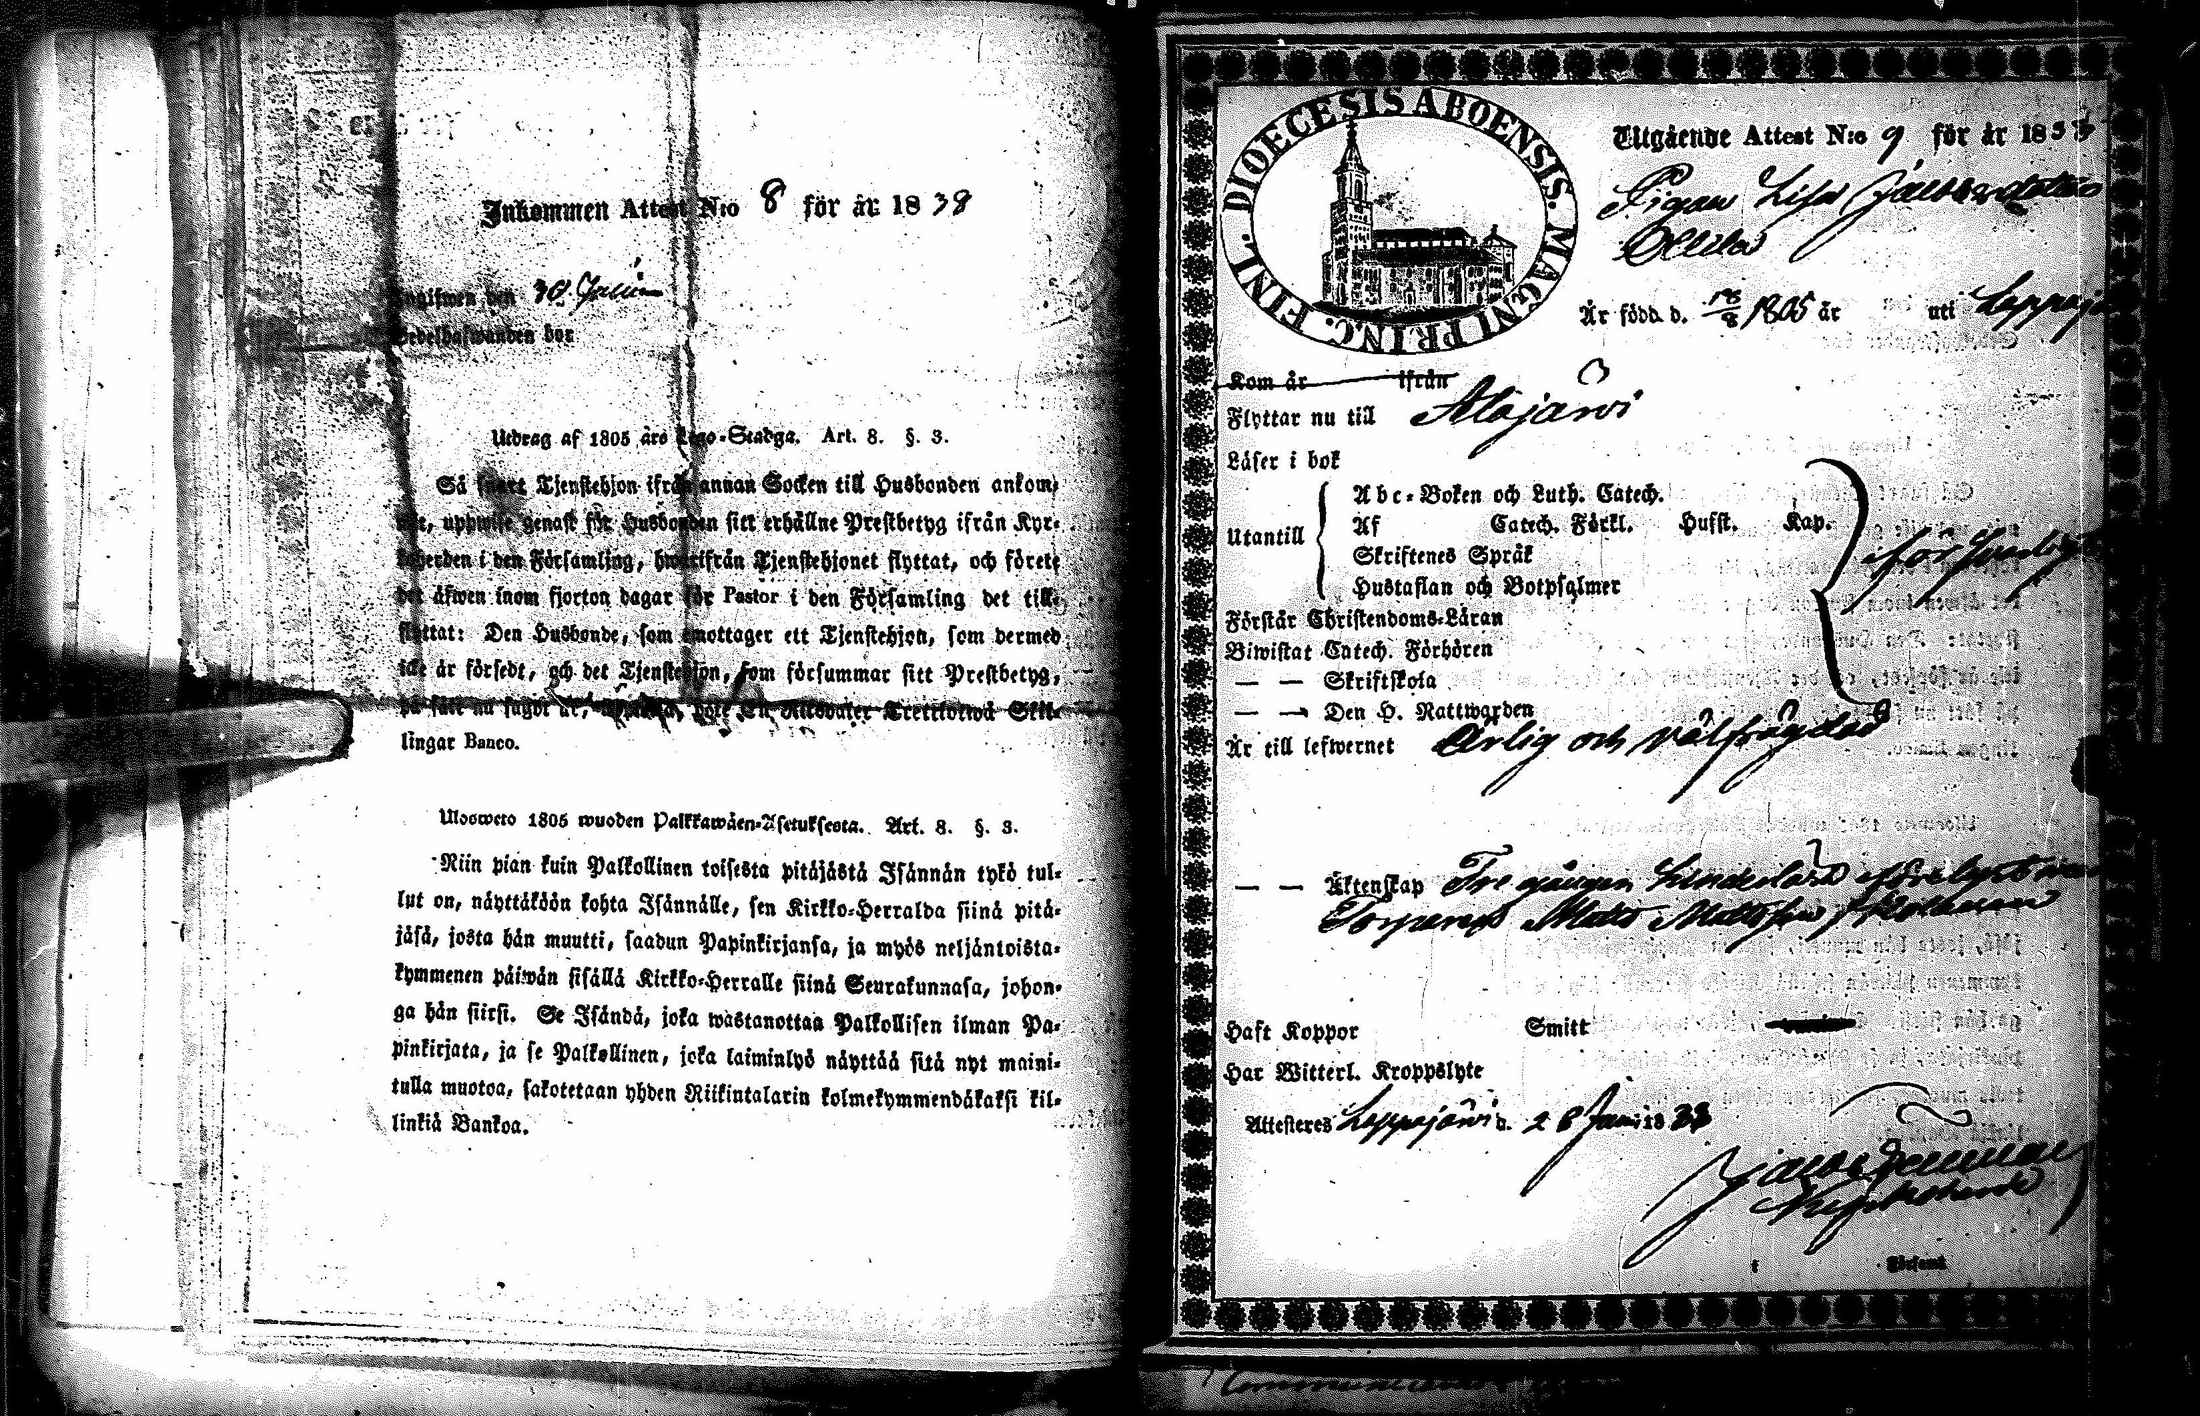 Inkommen Attest N:o 8 för år 1838
Ingifwen den 30 Junii
Bedelhafwanden bor
Utdrag af 1805 års Lego-Stadga. Art. 8. §. 3.
Så snart Tjenstehjon ifrån annan Socken till Husbonden ankom-
mit, uppwise genast för Husbonden sitt erhållne Prestbetyg ifrån Kyr-
koherden i den Församling, hwarifrån Tjenstehjonet flyttat, och förete
det äfwen inom fjorton dagar för Pastor i den Församling det till-
flyttat: Den Husbonde, som emottager ett Tjenstehjon, som dermed
icke är försedt, och det Tjenstehjon, som försummar sitt Prestbetyg,
på sätt nu sagdt är, böte En Riksdaler Trettiotwå Skil-
lingar Banco.
Ulosweto 1805 wuoden Palkkawäen-Asetuksesta. Art. 8. §. 3.
Niin pian kuin Palkollinen toisesta pitäjästä Isännän tykö tul-
lut on, näyttäköön kohta Isännälle, sen Kirkko-Herralda siinä pitä-
jäsä, josta hän muutti, saadun Papinkirjansa, ja myös neljäntoista-
kymmenen päiwän sisällä Kirkko-Herralle siinä Seurakunnasa, johon-
ga hän siirsi. Se Isändä, joka wastanottaa Palkollisen ilman Pa-
pinkirjata, ja se Palkollinen, joka laiminlyö näyttää sitä nyt maini-
tulla muotoa, sakotetaan yhden Riikintalarin kolmekymmendäkaksi kil-
linkiä Bankoa.
DIOECESIS ABOENSIS. MAGNI PRINC. FINL.
Utgående Attest N:o 9 för år 1838
Pigan Lisa
Är född d. 18/8 1805 år uti
Kom år ifrån
Flyttar nu till Alajärwi
Läser i bok
Utantill
Abc-Boken och Luth. Catech.
Af Catech. Förkl. Husst. Kap.
Skriftenes Språk
Hustaflan och Botpsalmer
Förstår Christendoms-Läran
Biwistat Catech. Förhören
— — Skriftskola
— — Den H. Nattwarden
Är till lefwernet Ärlig och välfrägdad
— — Äktenskap Tre gången
Torparen Matts Mattsson
Haft Koppor Smitt
Har Witterl. Kroppslyte
Attesteres Lappajärvi d. 28 Juni 1838